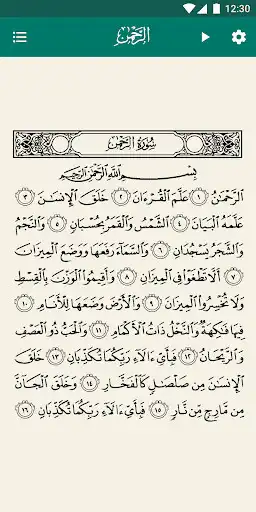 12:30
الرَّحْمَٰن
سُورَةُ الرَّحْمَٰن
بِسْمِ اللَّهِ الرَّحْمَٰنِ الرَّحِيمِ
الرَّحْمَٰنُ ١ عَلَّمَ الْقُرْءَانَ ٢ خَلَقَ الْإِنسَٰنَ ٣
عَلَّمَهُ الْبَيَانَ ٤ الشَّمْسُ وَالْقَمَرُ بِحُسْبَانٍ ٥ وَالنَّجْمُ
وَالشَّجَرُ يَسْجُدَانِ ٦ وَالسَّمَآءَ رَفَعَهَا وَوَضَعَ الْمِيزَانَ
٧ أَلَّا تَطْغَوْا فِى الْمِيزَانِ ٨ وَأَقِيمُوا الْوَزْنَ بِالْقِسْطِ
وَلَا تُخْسِرُوا الْمِيزَانَ ٩ وَالْأَرْضَ وَضَعَهَا لِلْأَنَامِ ١٠
فِيهَا فَٰكِهَةٌ وَالنَّخْلُ ذَاتُ الْأَكْمَامِ ١١ وَالْحَبُّ ذُو الْعَصْفِ
وَالرَّيْحَانُ ١٢ فَبِأَىِّ ءَالَآءِ رَبِّكُمَا تُكَذِّبَانِ ١٣ خَلَقَ
الْإِنسَٰنَ مِن صَلْصَٰلٍ كَالْفَخَّارِ ١٤ وَخَلَقَ الْجَآنَّ
مِن مَّارِجٍ مِّن نَّارٍ ١٥ فَبِأَىِّ ءَالَآءِ رَبِّكُمَا تُكَذِّبَانِ ١٦